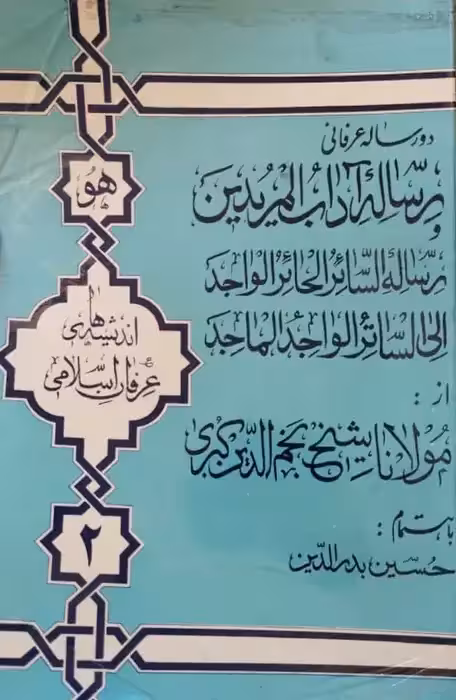 دو رساله عرفانی
رسالهٔ آداب المریدین
و
رسالهٔ السّائر الحائر الواجد
الی السّاتر الواحد الماجد
از :
مولانا شیخ نجم الدّین کبری
باهتمام :
حسین بدرالدّین
هو
اندیشه‌های
عرفان اسلامی
۲